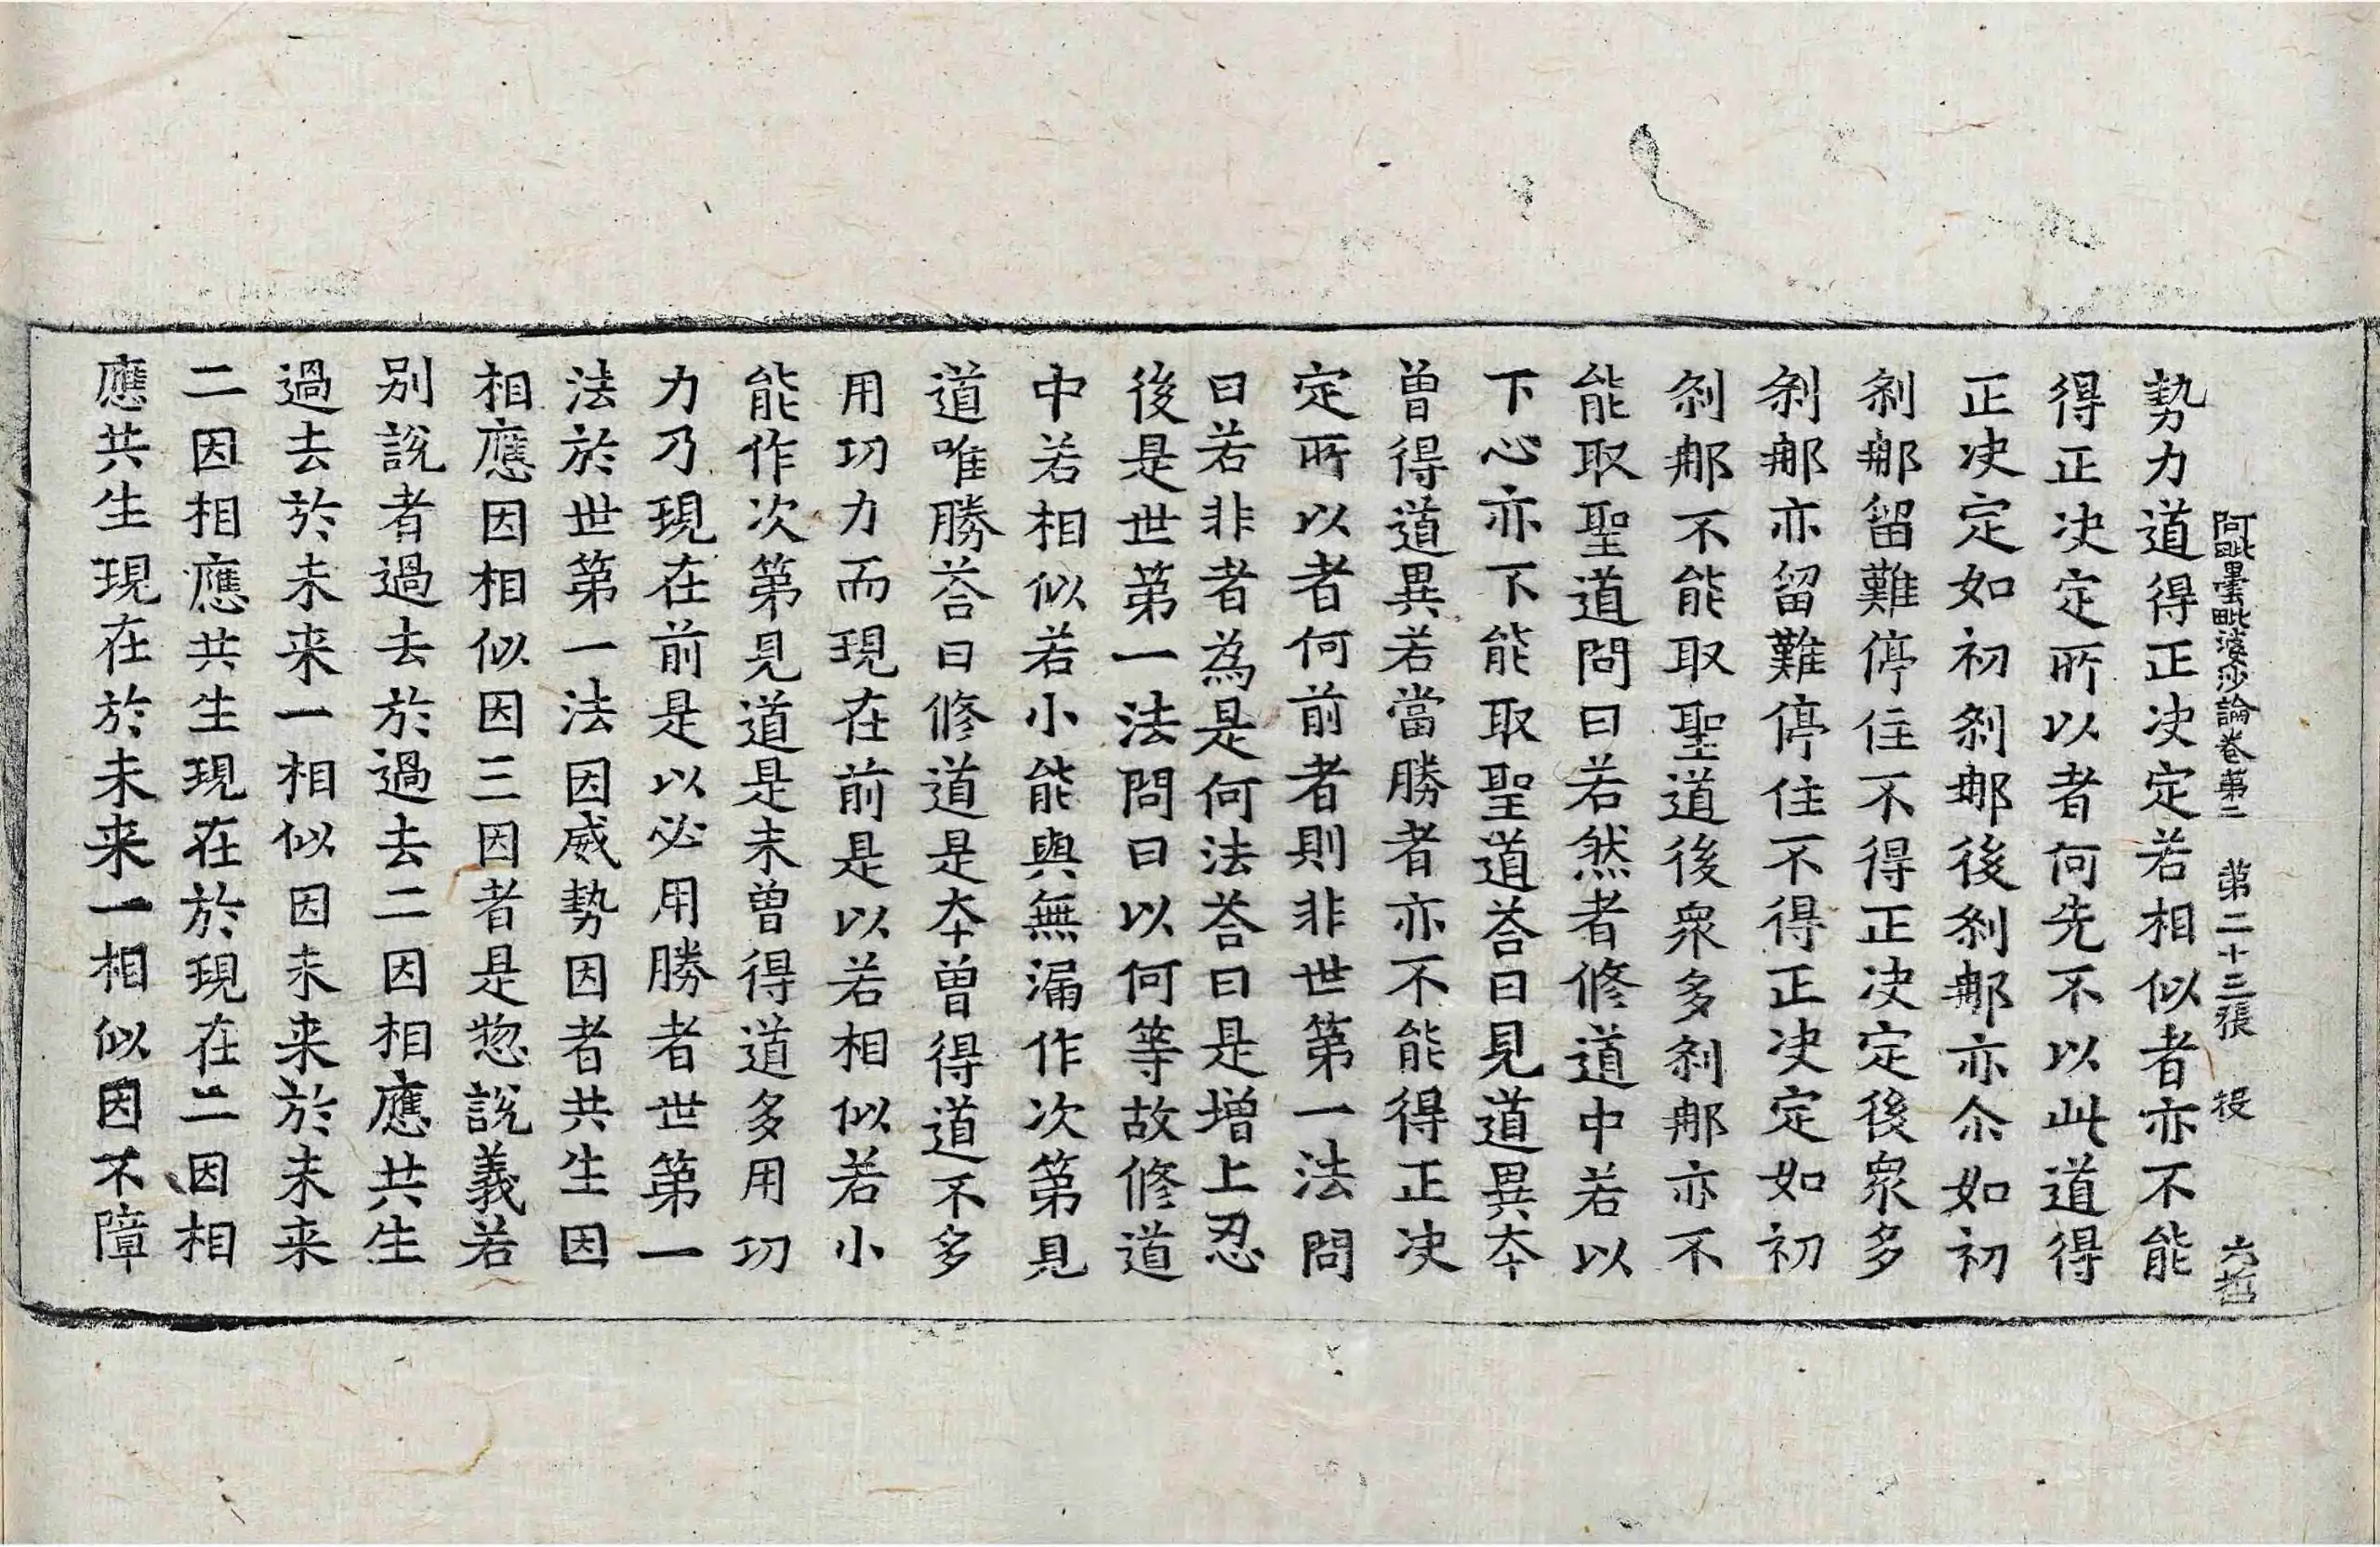 阿毗曇毗婆沙論卷第二　第二十三張　投　六哲
勢力道得正決定若相似者亦不能
得正決定所以者何先不以此道得
正決定如初剎那後剎那亦尒如初
剎那留難停住不得正決定後衆多
剎那亦留難停住不得正決定如初
剎那不能取聖道後衆多剎那亦不
能取聖道問曰若然者修道中若以
下心亦下能取聖道荅曰見道異夲
曾得道異若當勝者亦不能得正決
定所以者何前者則非世第一法問
曰若非者為是何法荅曰是增上忍
後是世第一法問曰以何等故修道
中若相似若小能與無漏作次第見
道唯勝荅曰修道是夲曾得道不多
用功力而現在前是以若相似若小
能作次第見道是未曾得道多用功
力乃現在前是以必用勝者世第一
法於世第一法因威勢因者共生因
相應因相似因三因者是惣說義若
別說者過去於過去二因相應共生
過去於未来一相似因未来於未来
二因相應共生現在於現在二因相
應共生現在於未来一相似因不障